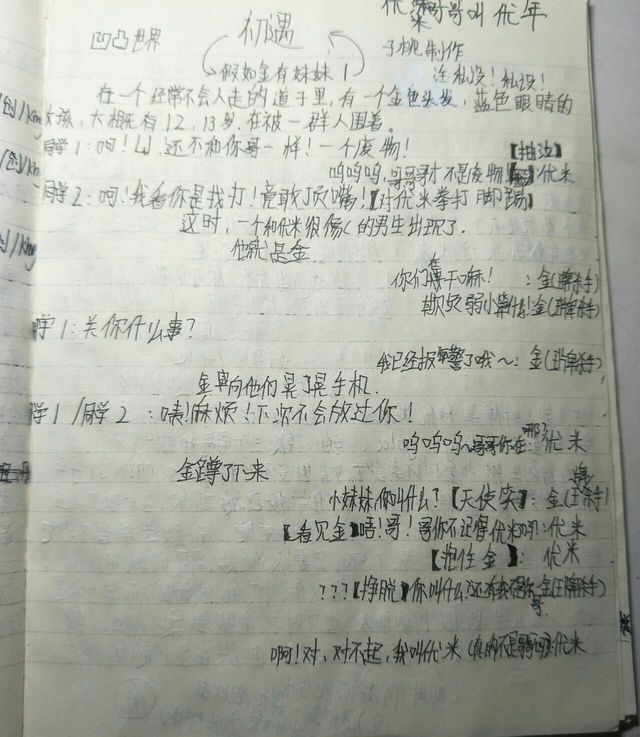 优米哥哥叫优年
凹凸世界 初遇 子桃制作
假如金有妹妹1 注私设!私设!
在一个经常不会人走的道子里,有一个金色头发,蓝色眼睛的
女孩,大概有12,13岁,在被一群人围着。
同学1:呵!以 还不和你哥一样!一个废物!【抽边】
呜呜呜,哥哥才不是废物 :优米
同学2:呵!我看你是找打!竟敢顶嘴!【对优米拳打脚踢】
这时,一个和优米很像的男生出现了。
他就是金
你们在干嘛! :金(王牌杀手)
欺负弱小算什么!金(王牌杀手)
学1:关你什么事?
我已经报警了哦~:金(王牌杀手)
金向他们晃了晃手机
学1/同学2:咦!麻烦!下次不会放过你!
呜呜呜,哥哥你在哪?:优米
金蹲了下来
小妹妹,你叫什么?【天使笑】:金(王牌杀手)
【看见金】唔!哥!哥你不记得优米吗:优米
【抱住金】: 优米
???【挣脱】你叫什么?还有我不是你哥 金(王牌杀手)
啊!对,对不起,我叫优米(真的不是哥哥吗:优米